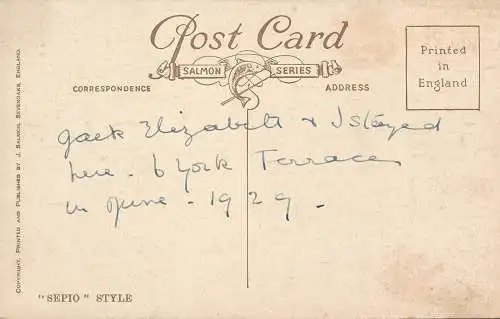 Post Card
SALMON SERIES
CORRESPONDENCE
ADDRESS
Printed
in
England
Jack Elizabeth & I stayed
here - 6 York Terrace
in June - 1929 -
"SEPIO" STYLE
COPYRIGHT, PRINTED AND PUBLISHED BY J. SALMON, SEVENOAKS, ENGLAND.